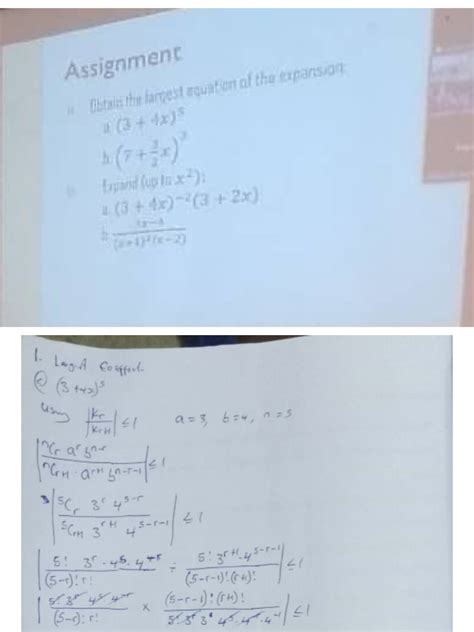 Assignment
Obtain the largest equation of the expansion:
a. (3 + 4x)^5
b. (7 + 3/2 x)^3
Expand (up to x^2):
a. (3 + 4x)^-2 (3 + 2x)
b. /(x+4)^2(x-2)
1. Largest Coefficient.
(a) (3 + 4x)^5
Using |Kr/Kr+1| ≤ 1 a = 3, b = 4, n = 5
|nCr a^r b^n-r / nCr+1 · a^r+1 b^n-r-1| ≤ 1
|5Cr 3^r · 4^5-r / 5Cr+1 3^r+1 4^5-r-1| ≤ 1
|5! 3^r · 4^5 · 4^-r / (5-r)! r! ÷ 5! 3^r+1 · 4^5-r-1 / (5-r-1)! (r+1)!| ≤ 1
|5! 3^r 4^5 4^-r / (5-r)! r! × (5-r-1)! (r+1)! / 5! 3^r 3^1 4^5 · 4^-r · 4^-1| ≤ 1